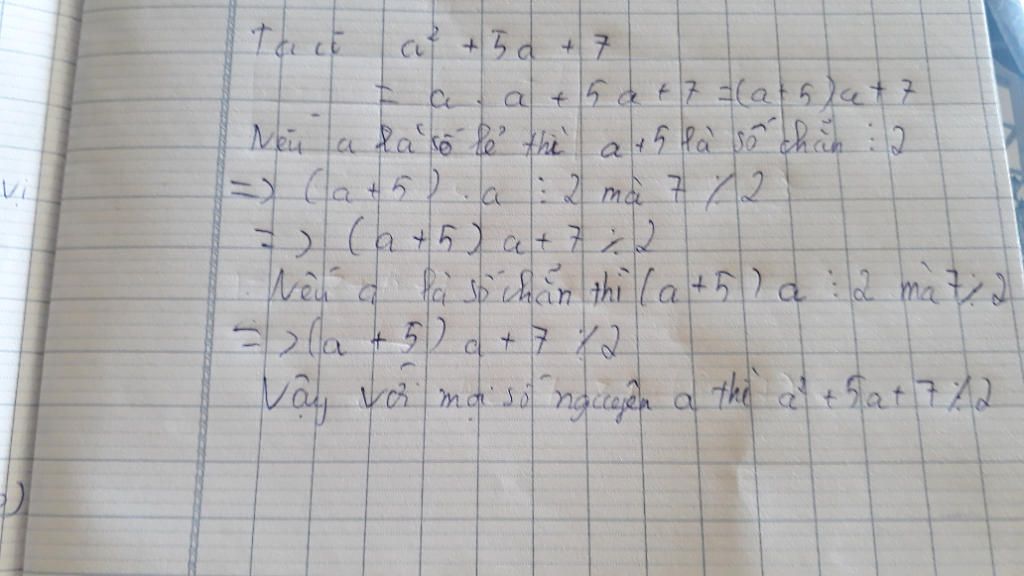 Ta có a² + 5a + 7
= a . a + 5a + 7 = (a+5)a + 7
Nếu a là số lẻ thì a+5 là số chẵn ⋮ 2
=> (a+5) . a ⋮ 2 mà 7 ⋮̸ 2
=> (a+5) a + 7 ⋮̸ 2
Nếu a là số chẵn thì (a+5) a ⋮ 2 mà 7 ⋮̸ 2
=> (a + 5) a + 7 ⋮̸ 2
Vậy với mọi số nguyên a thì a² + 5a + 7 ⋮̸ 2
Vì